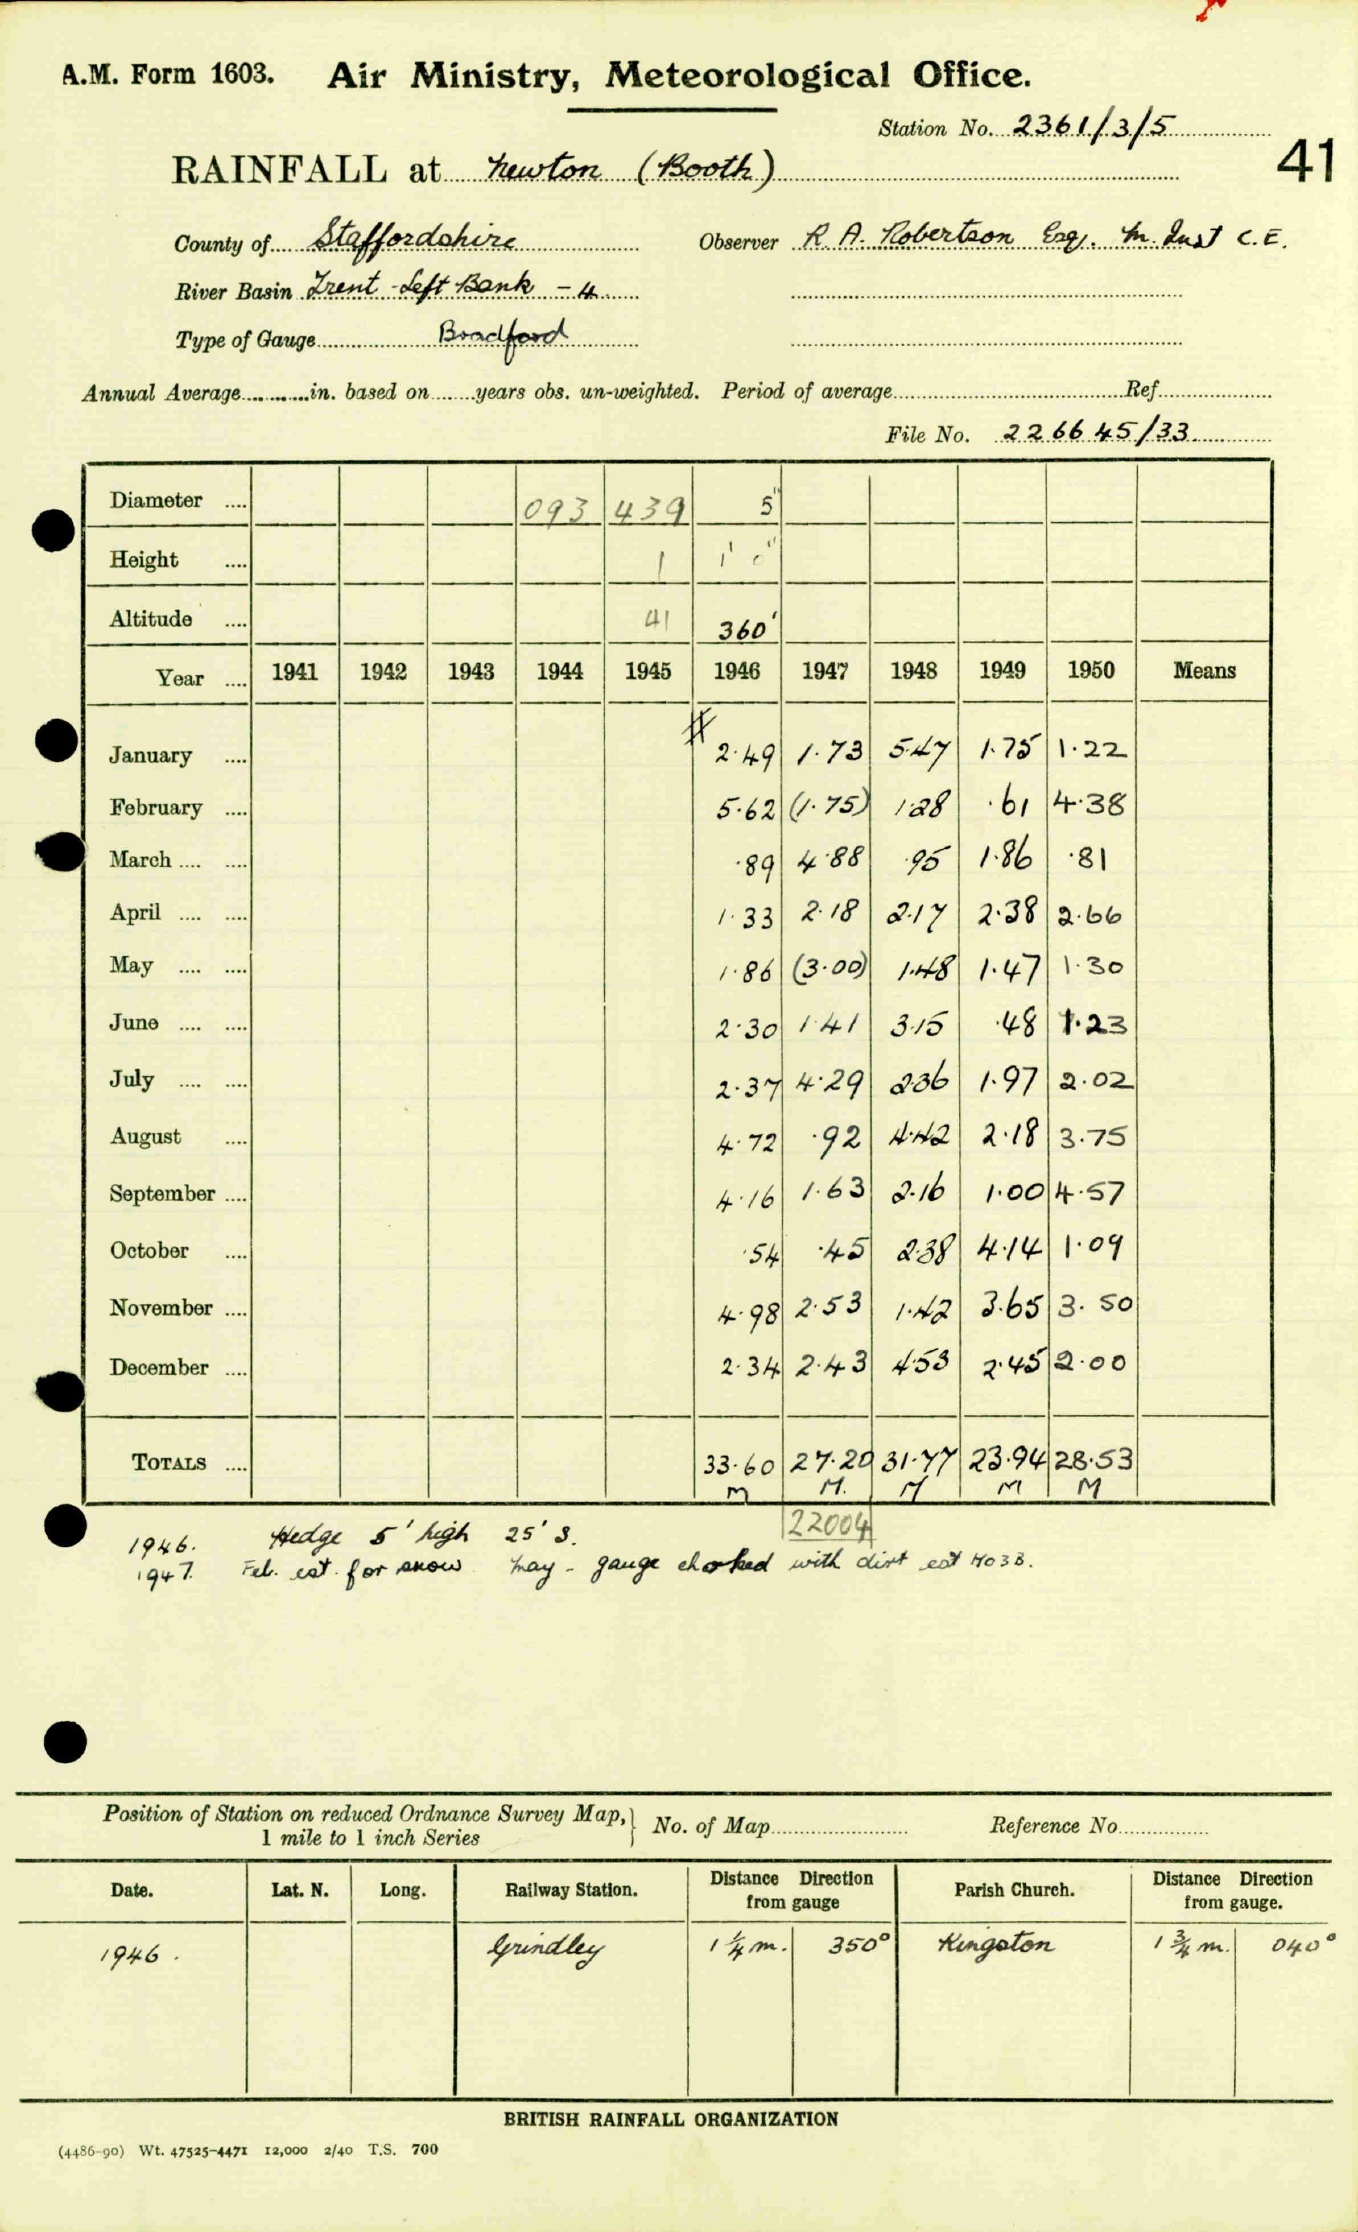 A.M. Form 1603. Air Ministry, Meteorological Office.
Station No. 2361/3/5
41
RAINFALL at Newton (Booth)
County of Staffordshire Observer R. A. Robertson Esq. M. Inst C.E.
River Basin Trent Left Bank - 4
Type of Gauge Bradford
Annual Average in. based on years obs. un-weighted. Period of average Ref.
File No. 226645/33
Diameter .... 093 439 5"
Height .... 1 1' 0"
Altitude .... 41 360'
Year .... 1941 1942 1943 1944 1945 1946 1947 1948 1949 1950 Means
January .... 2.49 1.73 5.47 1.75 1.22
February .... 5.62 (1.75) 1.28 .61 4.38
March .... .... .89 4.88 .95 1.86 .81
April .... .... 1.33 2.18 2.17 2.38 2.66
May .... .... 1.86 (3.00) 1.48 1.47 1.30
June .... .... 2.30 1.41 3.15 .48 1.23
July .... .... 2.37 4.29 2.36 1.97 2.02
August .... 4.72 .92 4.42 2.18 3.75
September .... 4.16 1.63 2.16 1.00 4.57
October .... .54 .45 2.38 4.14 1.09
November .... 4.98 2.53 1.42 3.65 3.50
December .... 2.34 2.43 4.53 2.45 2.00
TOTALS .... 33.60 27.20 31.77 23.94 28.53
M M. M M M
22004
1946. Hedge 5' high 25' S.
1947. Feb. est. for snow May - gauge choked with dirt est MO3B.
Position of Station on reduced Ordnance Survey Map,} No. of Map Reference No
1 mile to 1 inch Series
Date. Lat. N. Long. Railway Station. Distance Direction from gauge Parish Church. Distance Direction from gauge.
1946. Grindley 1 1/4 m. 350° Kingston 1 3/4 m. 040°
BRITISH RAINFALL ORGANIZATION
(4486-90) Wt. 47525-4471 12,000 2/40 T.S. 700